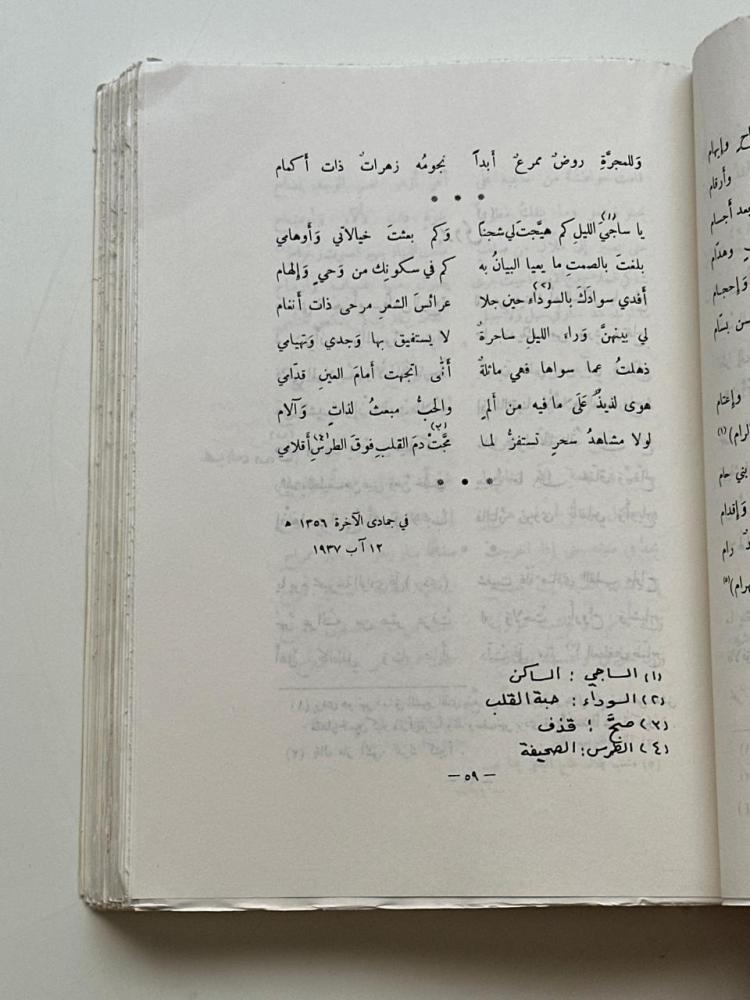 وَللمجرَّةِ روضٌ ممرعٌ أبداً نجومُه زهراتٌ ذات أكمام
* * *
يا ساجيَ(١) الليلِ كم هيَّجتَ لي شجنًا وَكم بعثتَ خيالاتي وَأوهامي
بلغتَ بالصمتِ ما يعيا البيانُ به كم في سكونِك من وَحيٍ وَإلهام
أفدي سوادَكَ بالسوْدَاء(٢) حين جلا عرائسَ الشعرِ مرحى ذات أنغام
لي بينهنَّ وَراء الليل ساحرةٌ لا يستفيق بها وَجدي وَتهيامي
ذهلتُ عما سواها فهي ماثلةٌ أنَّى اتجهت أمامَ العين قدّامي
هوى لذيذٌ عَلَى ما فيه من ألمٍ والحبُّ مبعثُ لذاتٍ وَآلام
لولا مشاهدُ سحرٍ تستفزُّ لما مجَّتْ(٣) دمَ القلبِ فوقَ الطرسِ(٤) أقلامي
* * *
في جمادى الآخرة ١٣٥٦ هـ
١٢ آب ١٩٣٧
(١) الساجي : الساكن
(٢) السوداء : حبة القلب
(٣) مجَّ : قذف
(٤) الطرس : الصحيفة
— ٥٩ —
وإيهام
وأرقام
بعد أجسام
وهدّام
وَإحجام
بسّام
وإغتام
(١)
بني حام
وَإقدام
رام
(٥)